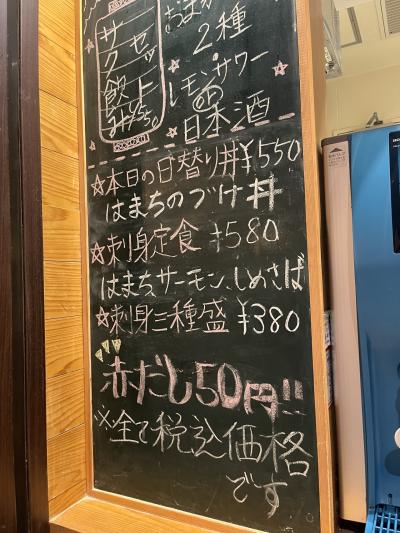 サク飲み
セット
おまか
2種
レモンサワー
or
日本酒
☆本日の日替り丼¥550
はまちのづけ丼
☆刺身定食 ¥580
はまち、サーモン、しめさば
☆刺身三種盛 ¥380
赤だし50円!!
※全て税込価格
です